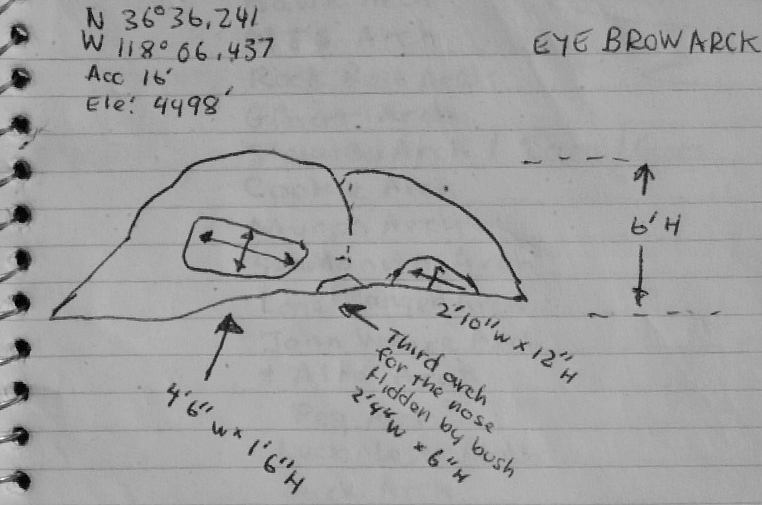 N 36°36,241
W 118°06,437
Acc 16'
Ele: 4498'
EYE BROW ARCK
6'H
2'10"W x 12"H
Third arch
for the nose
Hidden by bush
2'4"W x 6"H
4'6"W x 1'6"H